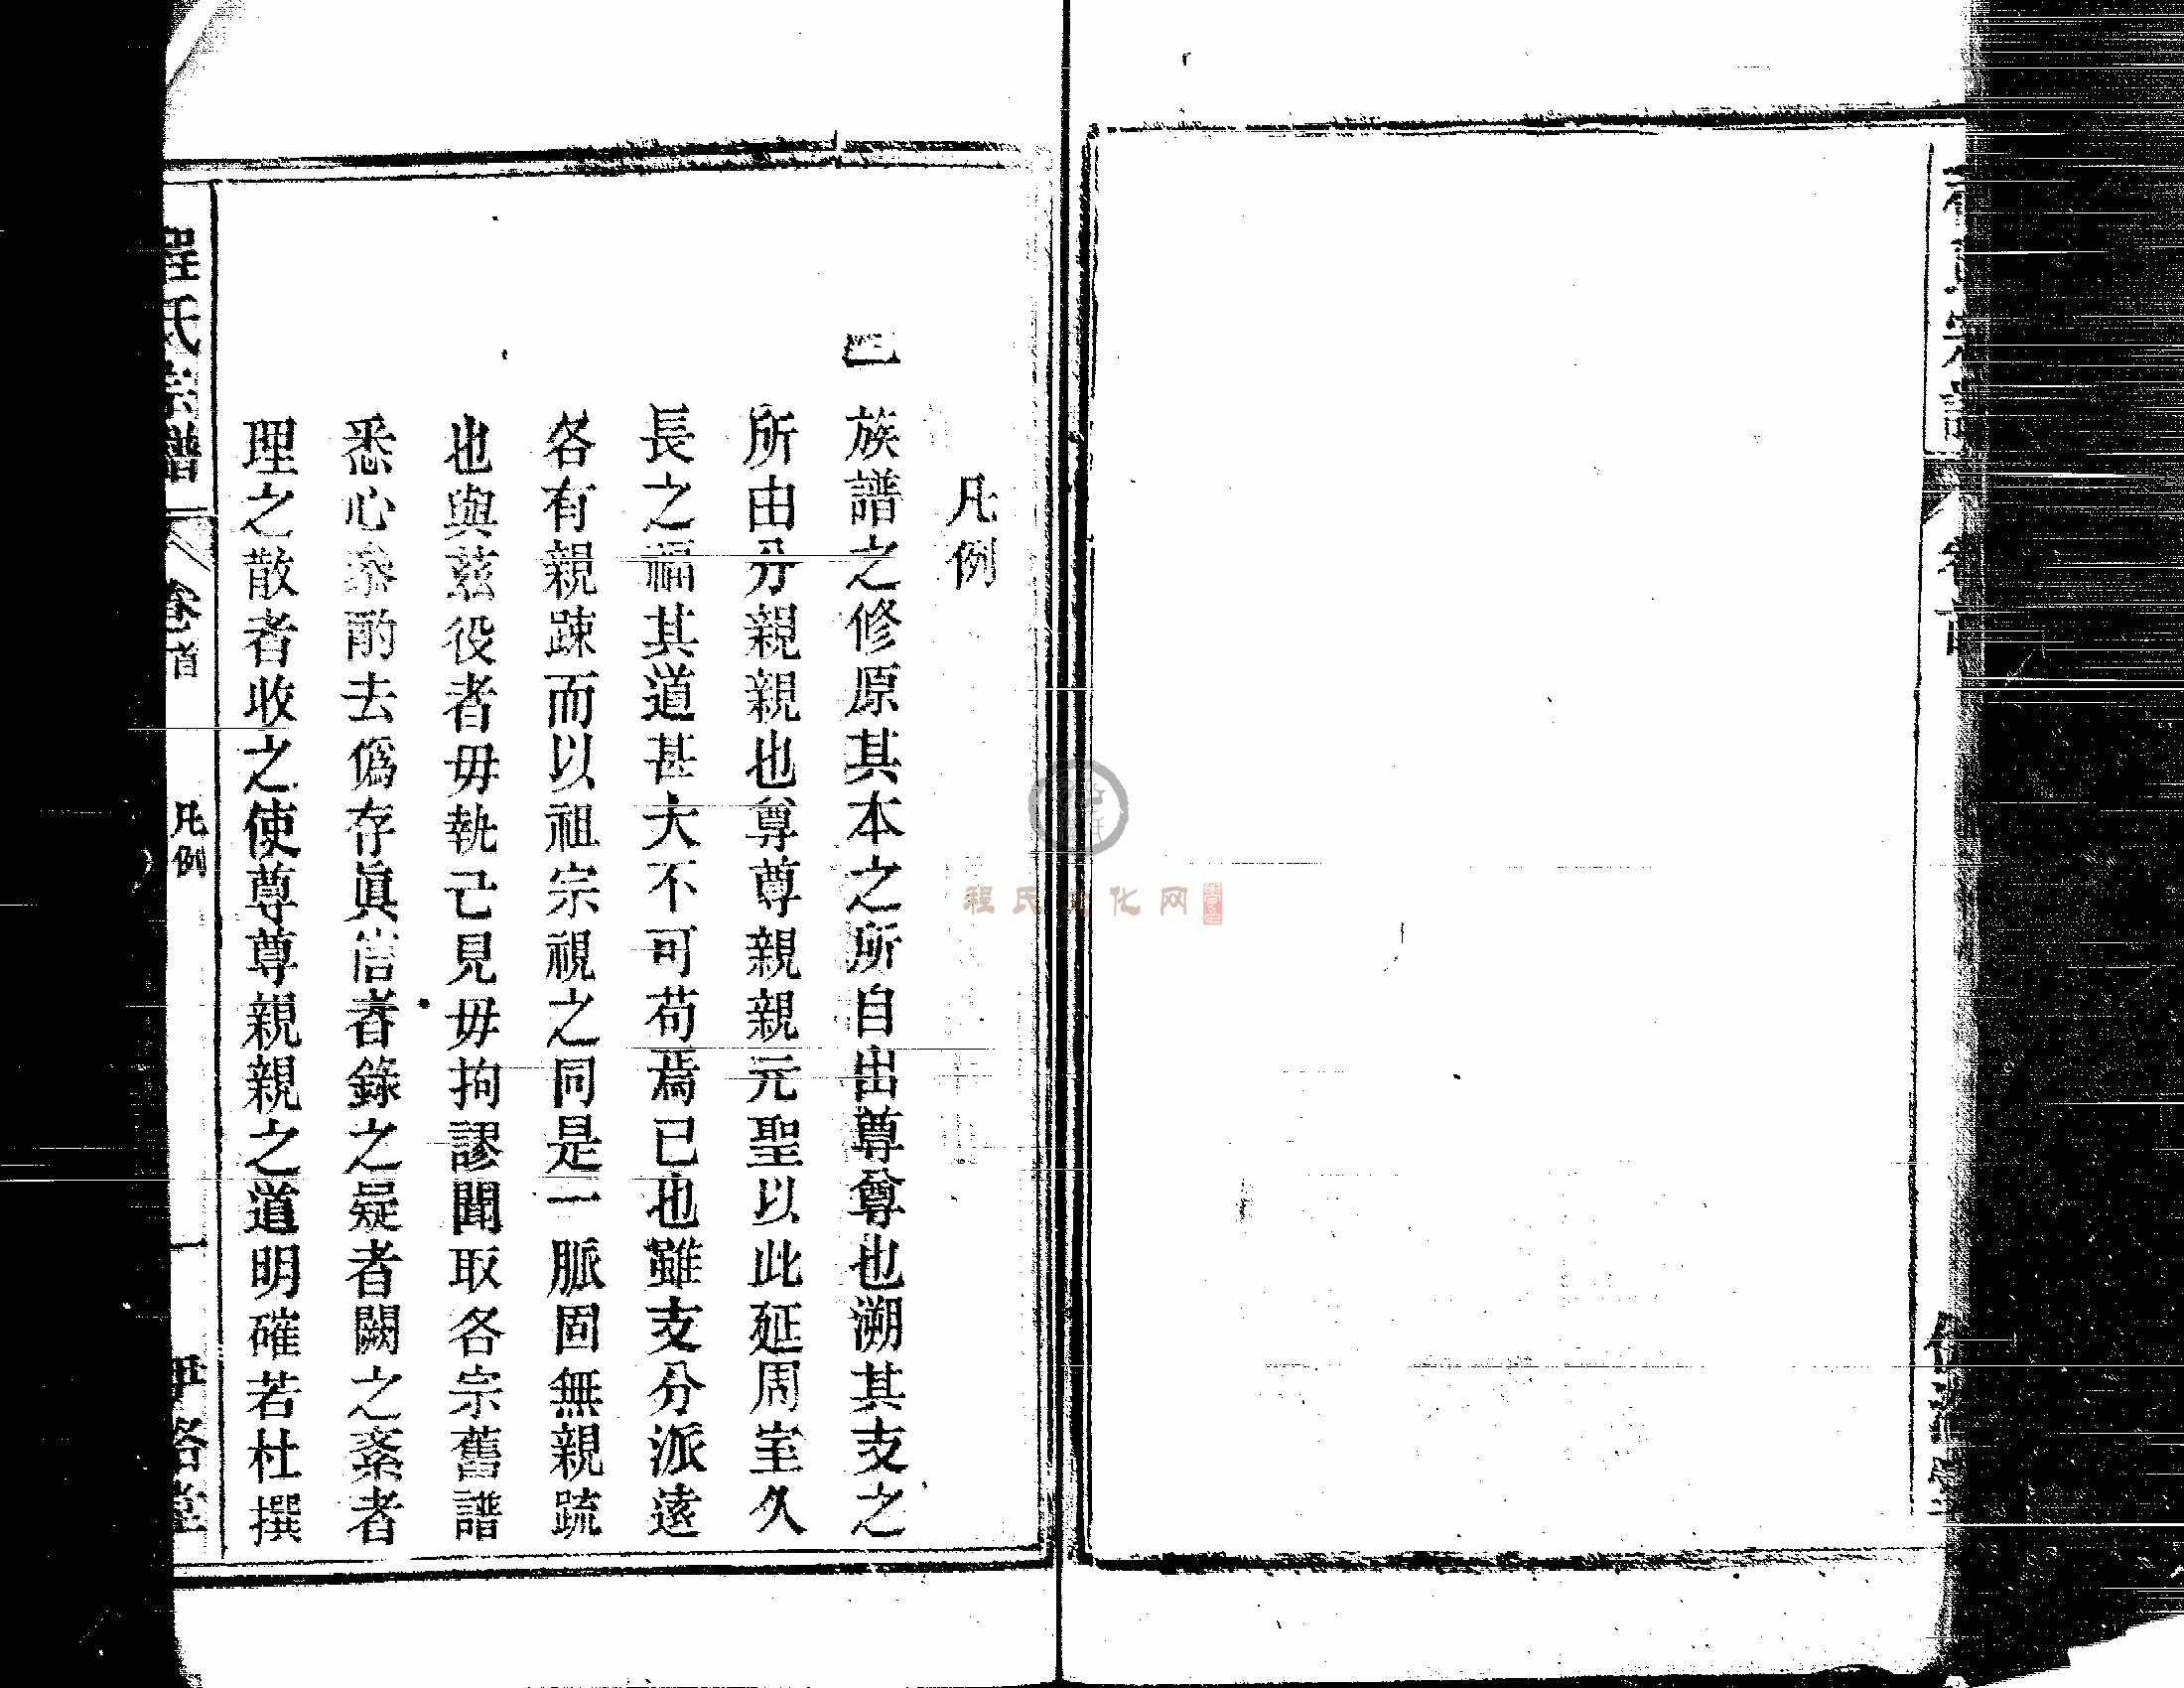 凡例
一族譜之修原其本之所自出尊尊也溯其支之
所由分親親也尊尊親親元聖以此延周室久
長之福其道甚大不可苟焉已也雖支分派遠
各有親踈而以祖宗視之同是一脈固無親疏
也與茲役者毋執己見毋拘謬聞取各宗舊譜
悉心叅酌去僞存眞信者錄之疑者闕之紊者
理之散者收之使尊尊親親之道明確若杜撰
程氏宗譜 卷首 凡例 一 伊洛堂
程氏文化网